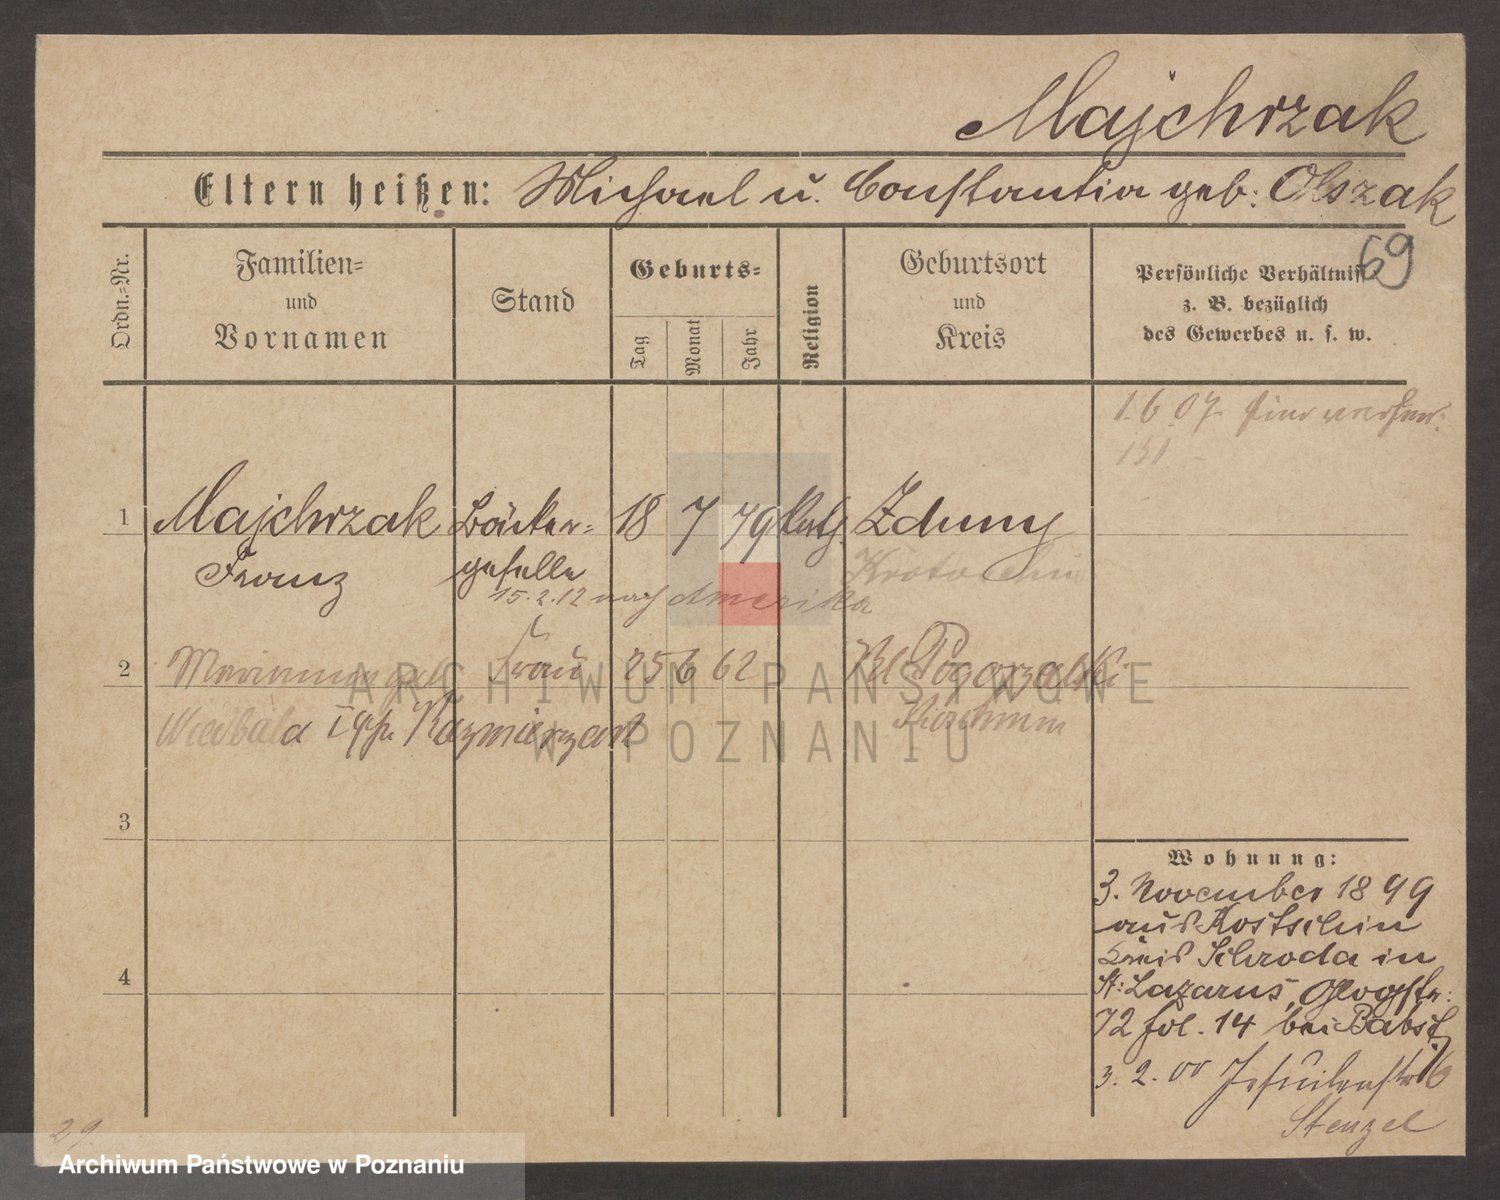 Majchrzak
Eltern heißen: Michael u. Constantia geb: Olszak
69
Ordn.=Nr.
Familien=
und
Vornamen
Stand
Geburts=
Tag
Monat
Jahr
Religion
Geburtsort
und
Kreis
Persönliche Verhältniss
z. B. bezüglich
des Gewerbes u. s. w.
1.6.07.
151
1 Majchrzak Bäcker= 18 7 79 kath. Zduny
Franz geselle Krotoschin
15.2.12 nach Amerika
2 Marianna geb Frau 25 6 62 Kl Pogorzalki
Kazmierzak
3
4
Wohnung:
3. November 1899
aus Kostschin
Kreis Schroda in
St: Lazarus, Glogstr:
72 fol. 14 bei Babst
3. 2. 00 Jesuitenstr 6
Stenzel
29
ARCHIWUM PAŃSTWOWE
W POZNANIU
Archiwum Państwowe w Poznaniu